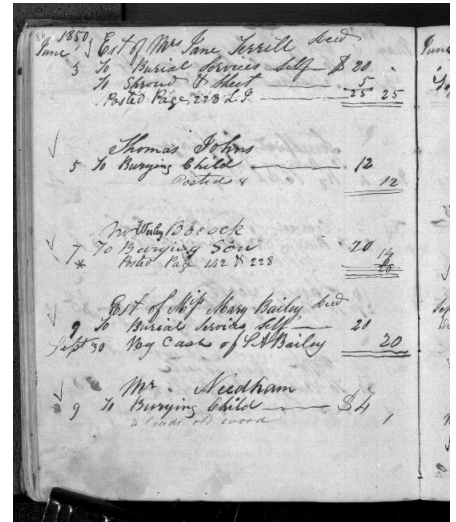 86 1850
June } Est of Mrs Jane Terrill Decd
3 To Burial Services Self $20
To Shroud & Sheet 5
Posted Page, 223 L 25 25
Thomas Johns
5 To Burying Child 12
Posted 8 12
Mr Wesley Bocock
7 To Burying Son 20 14
* Posted Page 142 & 228 20
Est of Miss Mary Bailey Decd
9 To Burial Services Self 20
Sept 30 By Cash of S A Bailey 20
Mr. Needham
9 To Burying Child $4
4 loads old wood 1
June